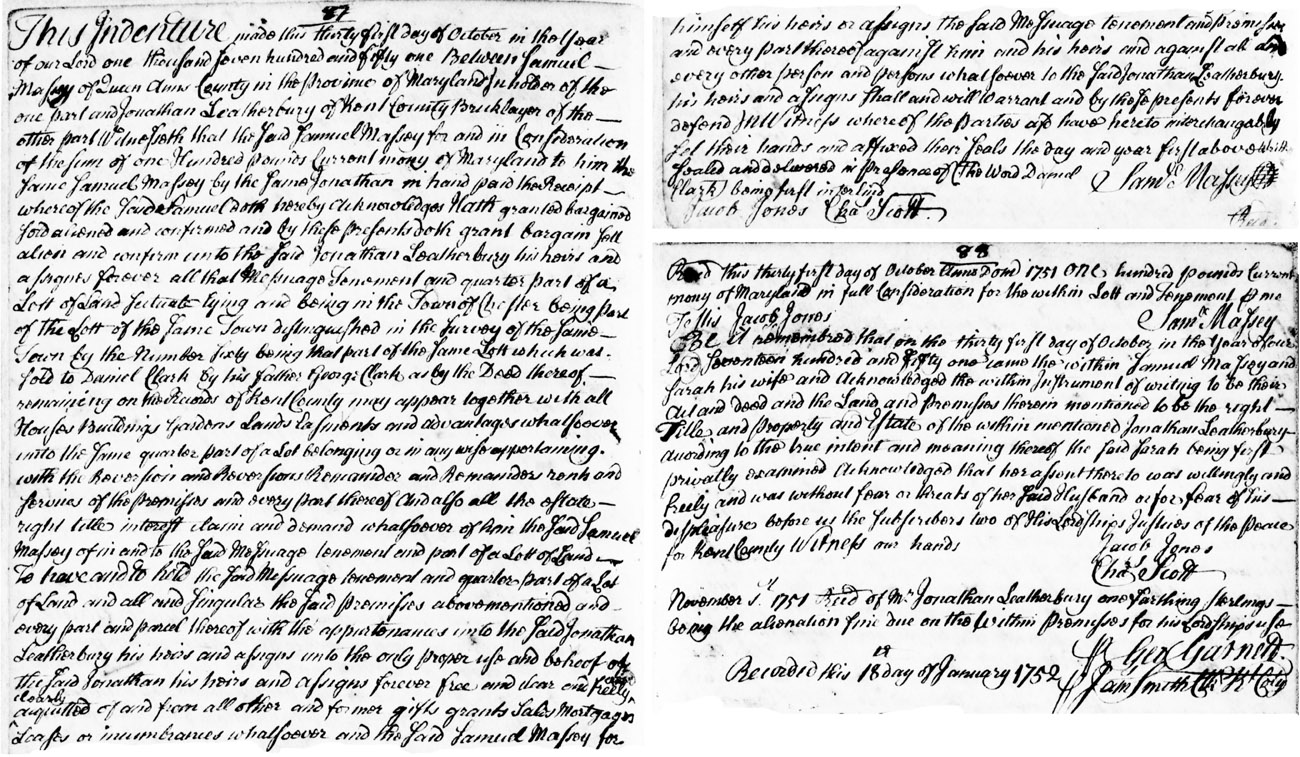 87
This Indenture made this thirty first day of October in the Year
of our Lord one thousand seven hundred and fifty one Between Samuel
Massey of Queen Anns County in the Province of Maryland Inholder of the
one part and Jonathan Leatherbury of Kent County Bricklayer of the
other part Witnesseth that the said Samuel Massey for and in Consideration
of the sum of one Hundred pounds Current mony of Maryland to him the
same Samuel Massey by the same Jonathan in hand paid the Receipt
whereof the said Samuel doth hereby Acknowledges Hath granted bargained
sold aliened and confirmed and by these presents doth grant bargain sell
alien and confirm unto the said Jonathan Leatherbury his heirs and
assignes forever all that Messuage Tenement and quarter part of a
Lott of Land situate lying and being in the Town of Chester being part
of the Lott of the same Town distinguished in the survey of the same
Town by the Number Sixty being that part of the same Lott which was
sold to Daniel Clark by his father George Clark as by the Deed thereof
remaining on the Records of Kent County may appear together with all
Houses Buildings Gardens Lands Easments and advantages whatsoever
unto the same quarter part of a Lot belonging or in any wise appertaining
with the Reversion and Reversions Remainder and Remainders rents and
services of the premises and every part thereof And also all the estate
right title interest claim and demand whatsoever of him the said Samuel
Massey of in and to the said Messuage tenement and part of a Lott of Land
To have and to hold the said Messuage tenement and quarter part of a Lot
of Land and all and singular the said premises abovementioned and
every part and parcel thereof with the appurtenances unto the said Jonathan
Leatherbury his heirs and assigns unto the only proper use and behoof of
the said Jonathan his heirs and assigns forever free and clear and freely
clearly
acquitted of and from all other and former gifts grants Sales Mortgages
Leases or incumbrances whatsoever and the said Samuel Massey for
himself his heirs or assigns the said Messuage tenement and premises
and every part thereof against him and his heirs and against all and
every other person and persons whatsoever to the said Jonathan Leatherbury
his heirs and assigns shall and will Warrant and by these presents forever
defend IN Witness whereof the Parties afs have hereto interchangeably
set their hands and affixed their seals the day and year first above writ
Sealed and delivered in presence of (The Word Daniel Saml Massey
Clark) being first interlind
Jacob Jones Chas Scott
88
Recd this thirty first day of October Anno Dom 1751 one hundred pounds Current
mony of Maryland in full Consideration for the within Lott and Tenement p me
Testis Jacob Jones Saml Massey
Be it remembred that on the thirty first day of October in the Year of our
Lord Seventeen hundred and fifty one came the within Samuel Massey and
Sarah his wife and Acknowledged the within Instrument of writing to be their
Act and deed and the Land and premisses therein mentioned to be the right
Title and property and Estate of the within mentioned Jonathan Leatherbury
according to the true intent and meaning thereof the said Sarah being first
privatly examined Acknowledged that her assent thereto was willingly and
freely and was without fear or threats of her said Husband or for fear of his
displeasure before us the subscribers two of His Lordships Justices of the Peace
for Kent County Witness our hands
Jacob Jones
Chas Scott
November 1st 1751 Recd of Mr Jonathan Leatherbury one farthing sterlings
being the alienation fine due on the within premisses for his Lordships use
p Geo Garnett
Recorded this 18th day of January 1752 p Jam Smith Clk K Coty